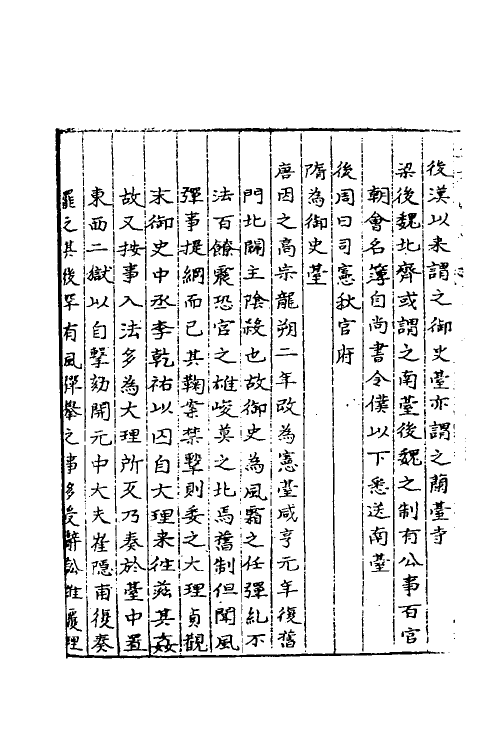 後漢以來謂之御史臺亦謂之蘭臺寺
梁後魏北齊或謂之南臺後魏之制有公事百官
朝會名簿自尚書令僕以下悉送南臺
後周曰司憲秋官府
隋為御史臺
唐因之高宗龍朔二年改為憲臺咸亨元年復舊
門北闢主陰殺也故御史為風霜之任彈糺不
法百僚震恐官之雄峻莫之比焉舊制但聞風
彈事提綱而已其鞫案禁繫則委之大理貞觀
末御史中丞李乾祐以囚自大理來往滋其姦
故又按事入法多為大理所反乃奏於臺中置
東西二獄以自擊劾開元中大夫崔隱甫復奏
罷之其後罕有風彈舉之事多受辭訟推覆理